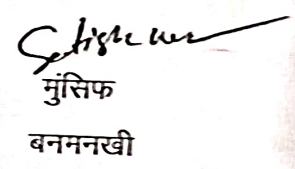 मुंसिफ
बनमनखी